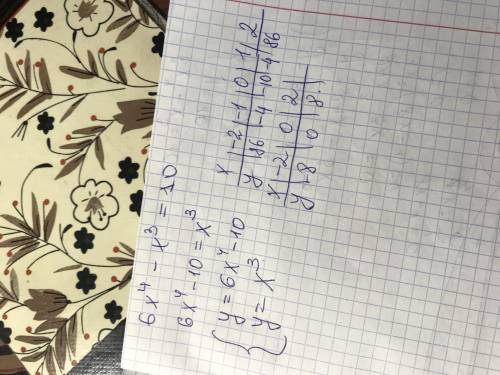 6x⁴ - x³ = 10
6x⁴ - 10 = x³
{ y = 6x⁴ - 10
y = x³
x | -2 | -1 | 0 | 1 | 2
y | 86 | -4 | -10 | -4 | 86
x | -2 | 0 | 2 |
y | -8 | 0 | 8 |